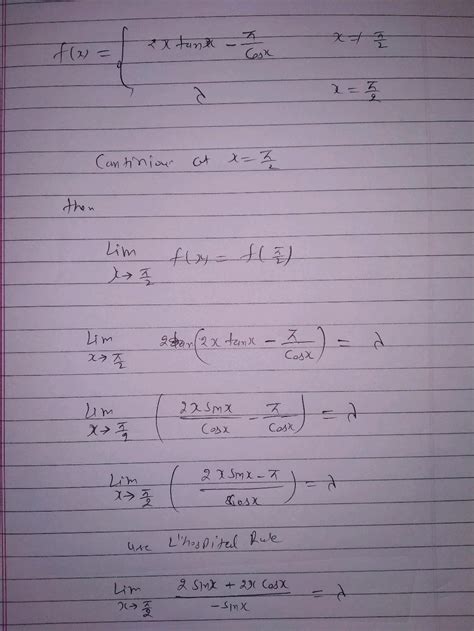 f(x) = { 2x tanx - π/cosx    x ≠ π/2
λ    x = π/2
Continious at x = π/2
then
Lim x→π/2 f(x) = f(π/2)
Lim x→π/2 (2x tanx - π/cosx) = λ
Lim x→π/2 (2x sinx/cosx - π/cosx) = λ
Lim x→π/2 ((2x sinx - π)/cosx) = λ
use L'hospital Rule
Lim x→π/2 (2 sinx + 2x cosx)/(-sinx) = λ